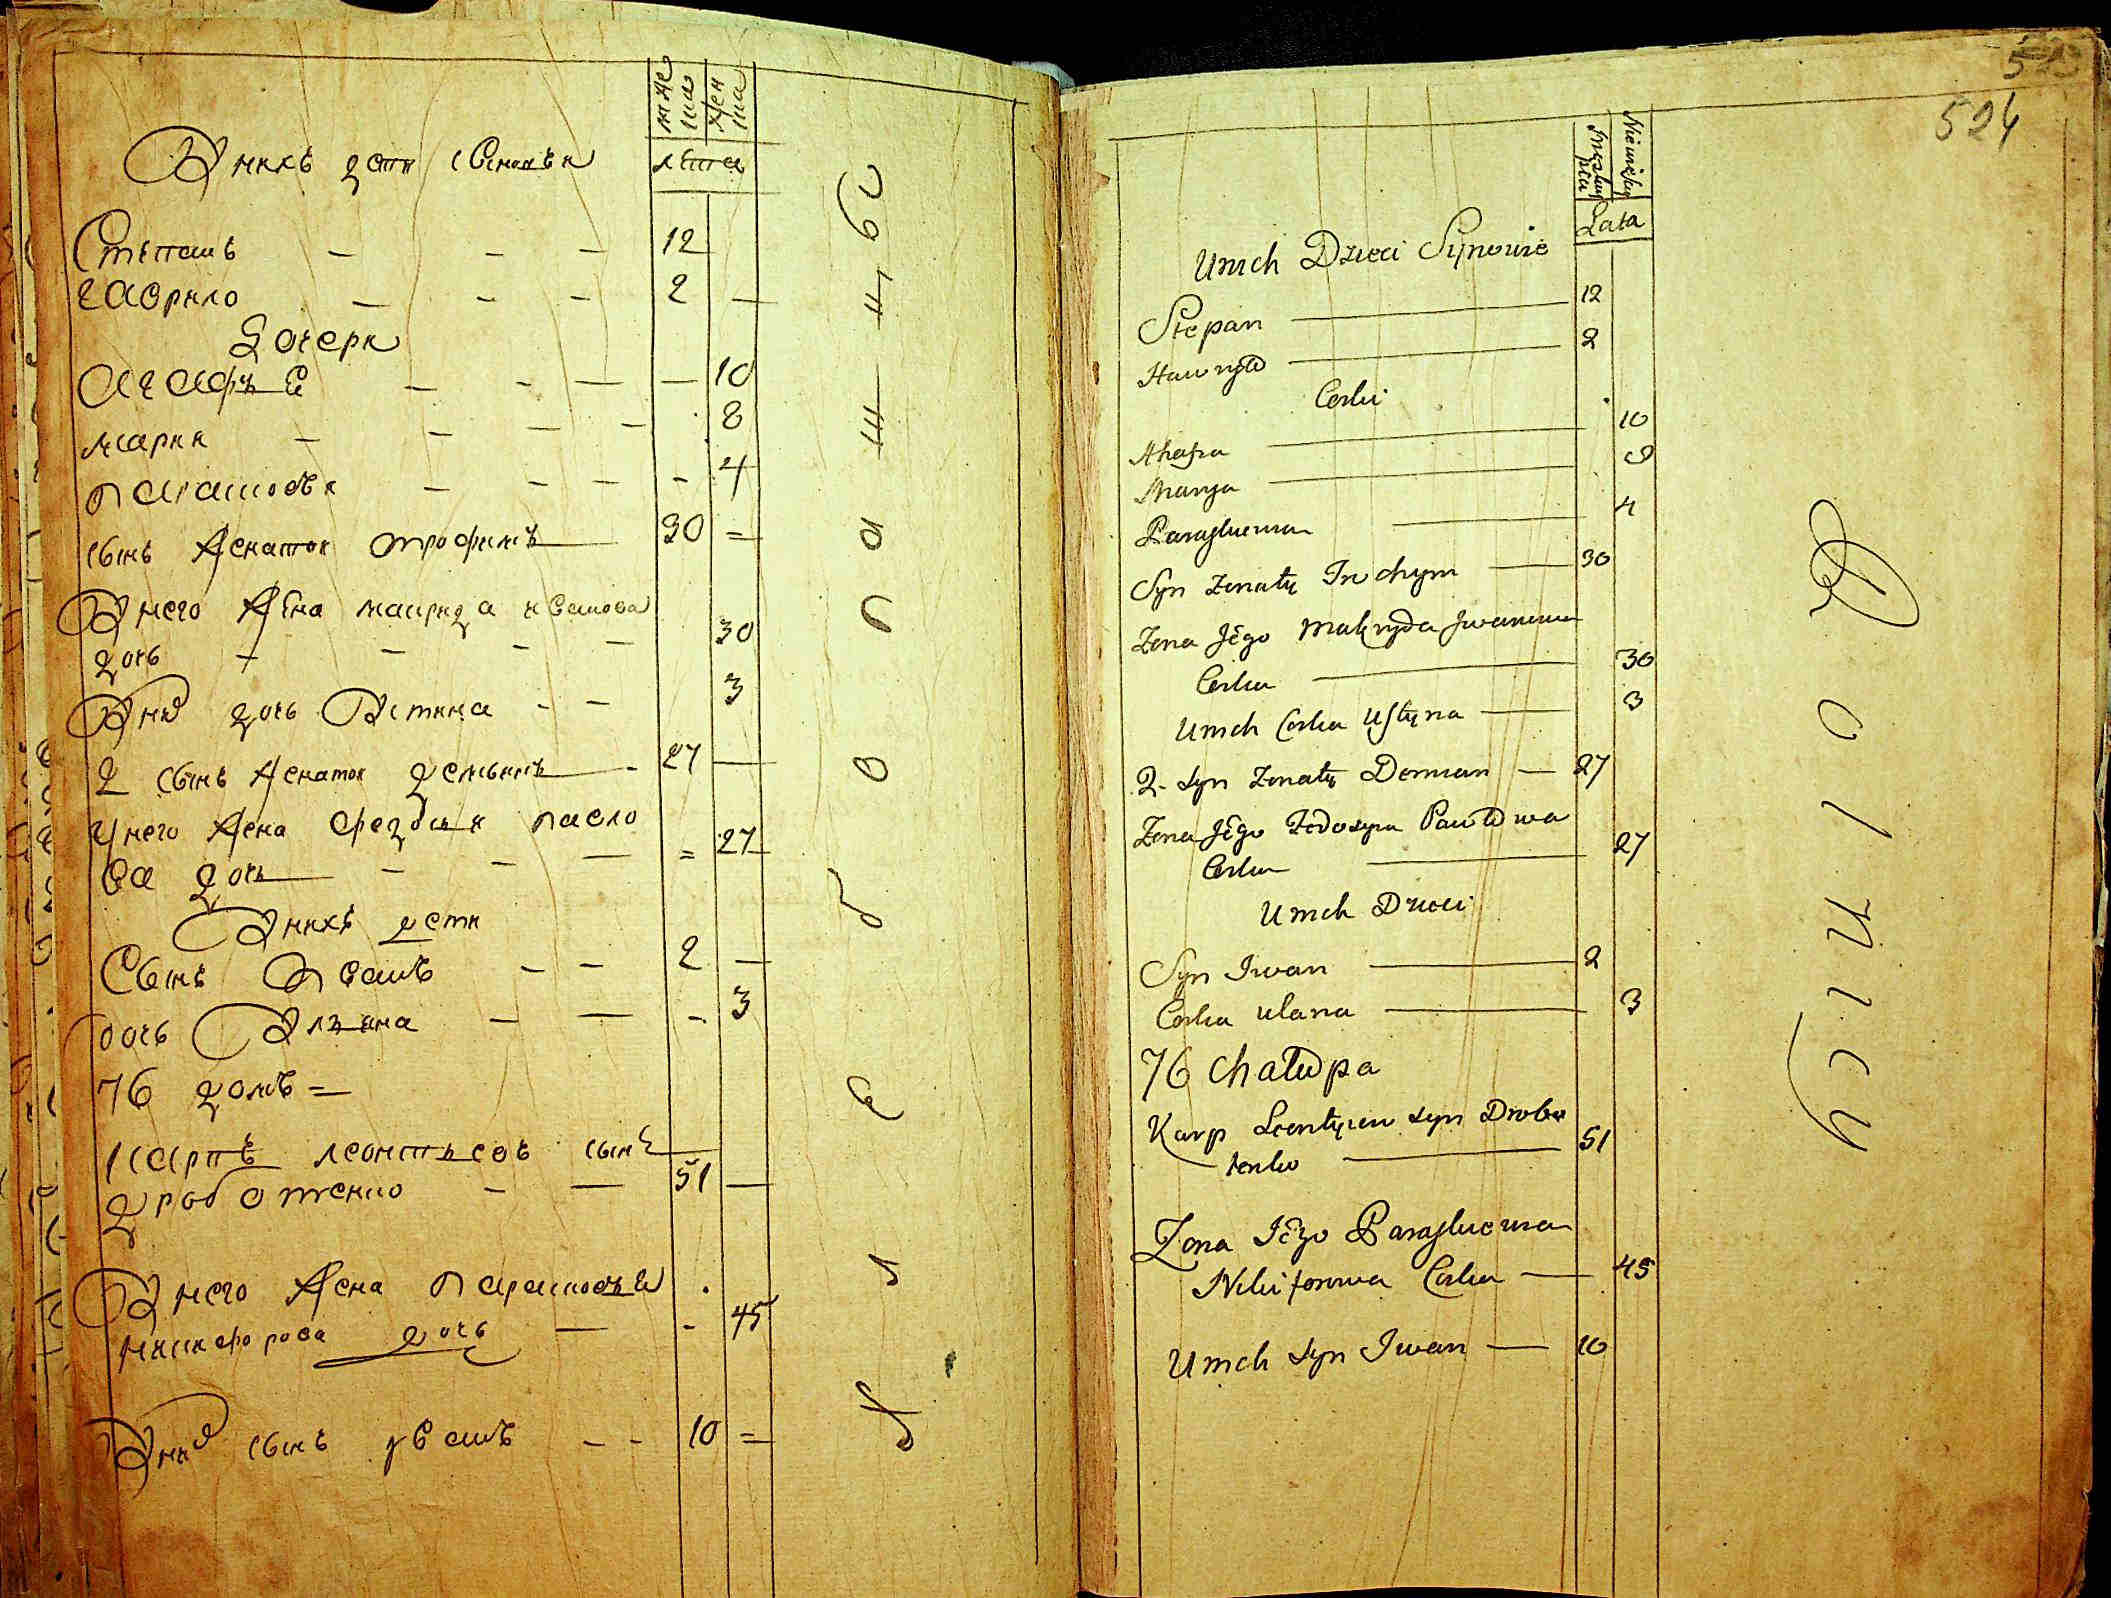 муже
ска
жен
ска
лета
У нихъ дети сыновья
Степанъ — — — 12
гаврило — — — 2 —
дочери
агафия — - — — 10
мария — — — — 8
парасковья — — — - 4
сынъ женатои трофимъ 30 =
У него жена макрида иванова
дочь — — — — 30
У них дочь Устина - — 3
2 сынъ женатои демьянъ - 27 —
У него жена федосия павло
ва дочь — — — = 27
У нихъ дети
Сынъ Иванъ — — 2 —
дочь Уляна — — - 3
76 домъ =
карпъ леонтьевъ сынъ
дроботенко — — 51 —
У него жена парасковья
никифорова дочь — - 45
У них сынъ иванъ — - 10 =
хлебороба
523
524
Męskiey
płci
Niewieściey
Lata
U nich Dzieci Synowie
Stepan — 12
Hawryło — 2
Corki
Ahafia — 10
Marya — 8
Paraskiewia — 4
Syn Zonaty Trochym — 30
Zona Jego Makryda Iwanowa
Corka — 30
U nich Corka Ustyna — 3
2. Syn Zonaty Demian — 27
Zona Jego Fedosya Pawłowa
Corka — 27
U nich Dzieci
Syn Iwan — 2
Corka Ulana — 3
76 Chałupa
Karp Leontyiew syn Drobo
tenko — 51
Zona Jego Paraskiewia
Nikiforowa Corka — 45
U nich syn Iwan — 10
Rolnicy